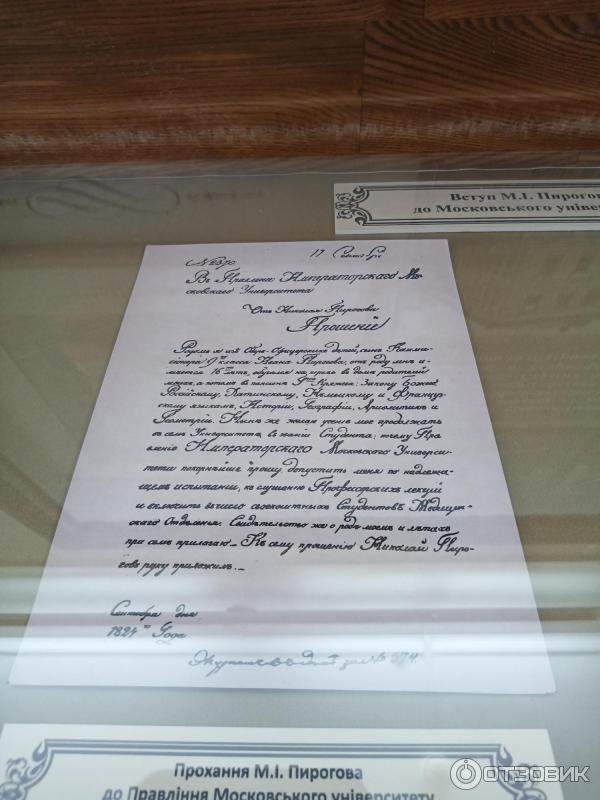 Вступ М.І. Пирогова
до Московського універ
№ 2370
17 Сентяб
Въ Правленіе Императорскаго Мо-
сковскаго Университета
Отъ Николая Пирогова
Прошеніе
Родомъ я изъ Оберъ-Офицерскихъ детей, сынъ Комми-
сіонера 9го класса Ивана Пирогова, отъ роду мне и-
мѣется 16 лѣтъ, обучался на пряво въ домѣ родителей
моихъ, а потомъ въ пансіонѣ Гна Кряжева: Закону Божію,
Россійскому, Латинскому, Немецкому и Француз-
скому языкамъ, Исторіи, Географіи, Ариѳметикѣ и
Геометріи. Нынѣ же желая ученіе мое продолжать
въ семъ Университетѣ въ званіи Студента; почему Пра-
вленіе Императорскаго Московскаго Универси-
тета покорнѣйше прошу допустить меня по надлежа-
щемъ испытаніи, къ слушанію Профессорскихъ лекцій
и включить въ число своекоштныхъ Студентовъ Медицин-
скаго Отделенія. Свидетельство же о роде моемъ и летахъ
при семъ прилагаю. Къ сему прошенію Николай Пиро-
говъ руку приложилъ.
Сентября дня
1824го Года
№ 574.
Прохання М.І. Пирогова
до Правління Московського університету
ОТЗОВИК